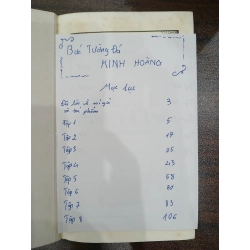 Bức Tường Đá
KINH HOÀNG
Mục lục
Đôi lời về tác giả 3
và tác phẩm
Tập 1 5
Tập 2 17
Tập 3 25
Tập 4 43
Tập 5 58
Tập 6
Tập 7 83
Tập 8 106